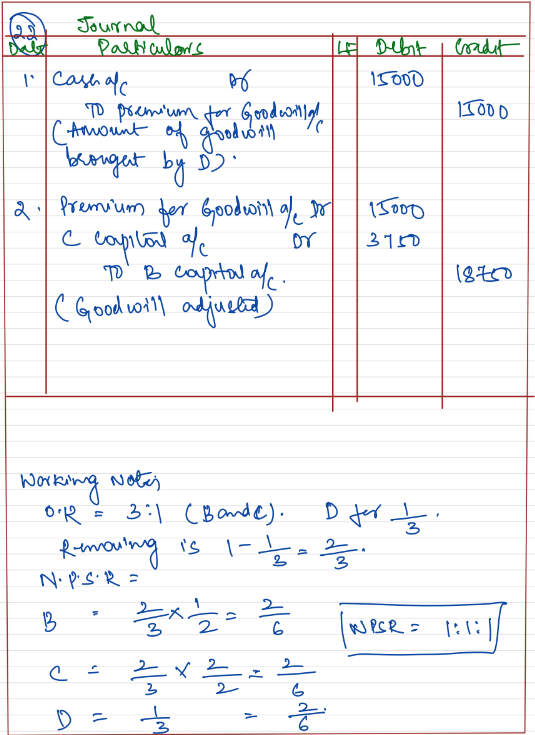 22 Journal
Date Particulars LF Debit Credit
1. Cash a/c Dr 15000
TO premium for Goodwill a/c 15000
(Amount of goodwill
brought by D).
2. Premium for Goodwill a/c Dr 15000
C capital a/c Dr 3750
TO B capital a/c. 18750
(Goodwill adjusted)
Working Notes
O.R = 3:1 (B and C). D for 1/3.
Remaining is 1 - 1/3 = 2/3.
N.P.S.R =
B = 2/3 × 1/2 = 2/6 NPSR = 1:1:1
C = 2/3 × 2/2 = 2/6
D = 1/3 = 2/6.